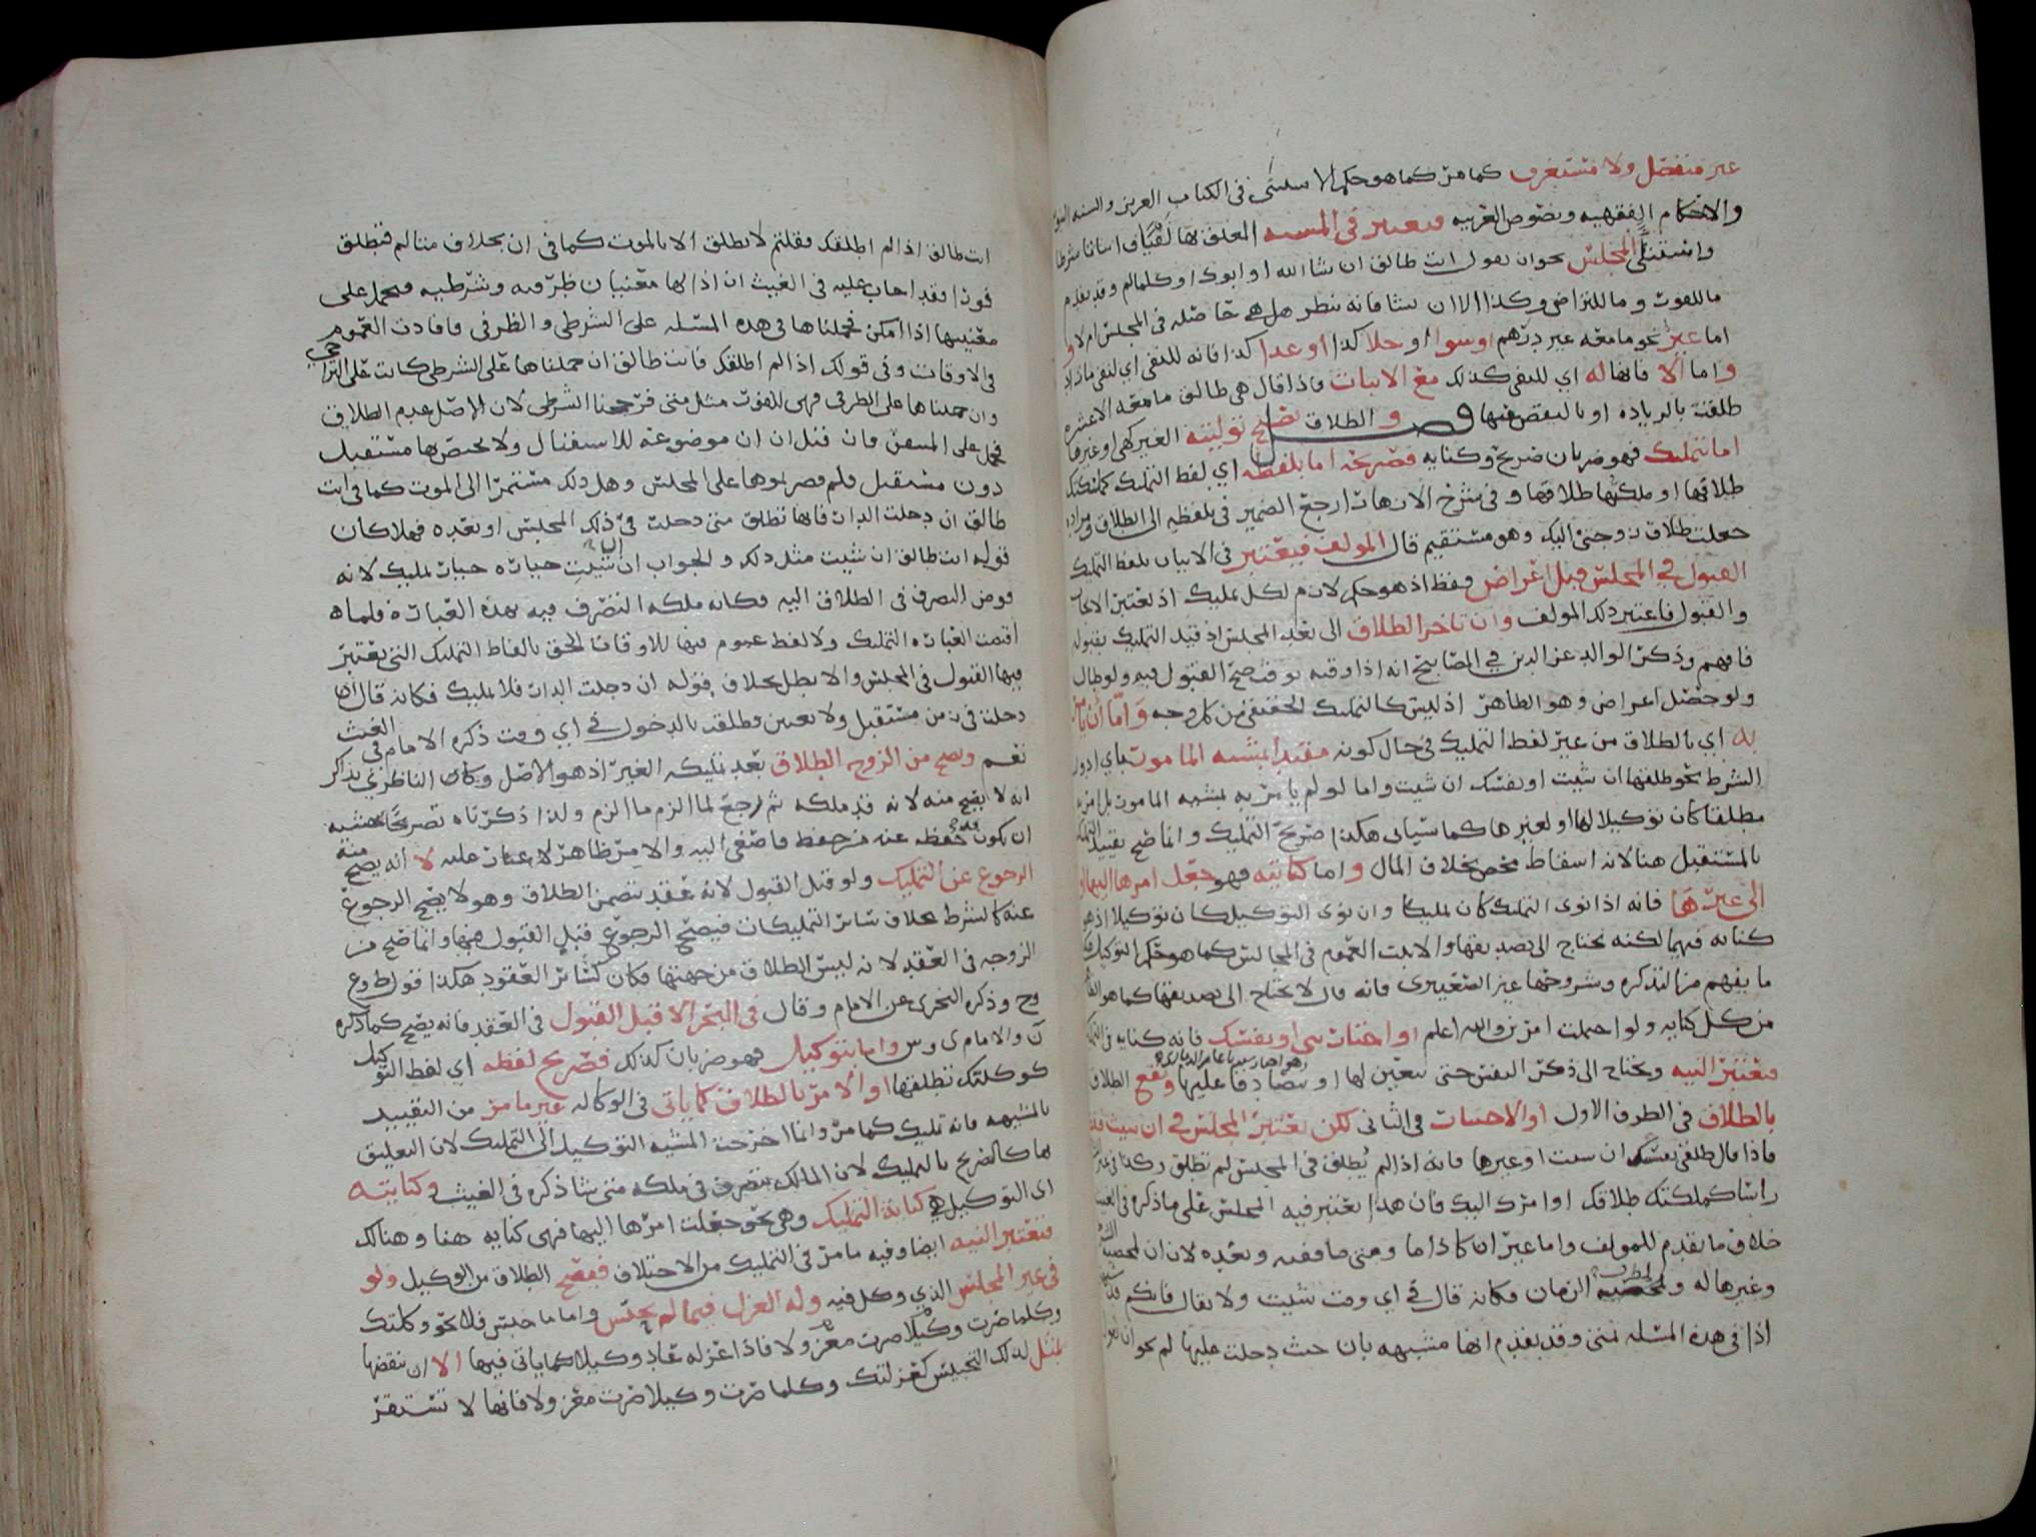 غير منفصل ولا مستغرق كما مر كما هو حكم الاستثنى في الكتاب العزيز والسنه
والاحكام الفقهيه ونصوص العربيه ويعتبر في المشيه المعلق بها
واستثنا المجلس نحو ان يقول انت طالق ان شا الله او ابوك او كلما لم وقد تقدم
ما للفوت وما للتراضي وكذا الا ان يشا فانه ينظر هل هي حاصله في المجلس ام لا و
اما غير نحو ما معه غير درهم وسوا وخلا كذا وعدا كذا فانه للنفي اي لنفي ما زاد
واما الا فانها له اي للنفي كذلك مع الاثبات فاذا قال هي طالق ما معه الا عشره
طلقت بالزياده او بالنقص منها فصل والطلاق تصح توليته الغير كهي او غيرها
اما بتمليك فهو ضربان صريح وكنايه فصريحه اما بلفظه اي لفظ التمليك كملكتك
طلاقها او ملكتها طلاقها وفي شرح الازهار ارجع الضمير في بلفظه الى الطلاق
جعلت طلاق زوجتي اليك وهو مستقيم قال المولف فيعتبر في الاتيان بلفظ التمليك
القبول في المجلس قبل اعراض فقط اذ هو حكم لازم لكل تمليك اذ يعتبر
والقبول فاعتبر ذلك المولف وان تاخر الطلاق الى بعد المجلس اذ قيد التمليك بقبوله
فافهم وذكر الوالد عز الدين في المصابيح انه اذا وقته بوقت صح القبول فيه ولو طال
ولو حصل اعراض وهو الظاهر اذ ليس كالتمليك الحقيقي من كل وجه واما ان يامر
به اي بالطلاق من غير لفظ التمليك في حال كونه مقيدا بمشيه المامور باي ادوات
الشرط نحو طلقها ان شيت او نفسك ان شيت واما لو لم يامر به بمشيه المامور بل امر به
مطلقا كان توكيلا لها او لغيرها كما سياتي هكذا صريح التمليك وانما صح تقييد التمليك
بالمستقبل هنا لانه اسقاط محض بخلاف المال واما كنايته فهو جعل امرها اليها او
الى غيرها فانه اذا نوى التمليك كان تمليكا وان نوى التوكيل كان توكيلا اذ هو
كنايه فيهما لكنه يحتاج الى تصديقها والا ثبت العموم في المجالس كما هو حكم التوكيل
ما يفهم من التذكره وشروحها غير الصعيتري فانه قال لا يحتاج الى تصديقها كما هو
من كل كنايه ولو احتملت امرين والله اعلم او اختاريني او نفسك فانه كنايه في
فتعتبر النيه ويحتاج الى ذكر النفس حتى يتعين لها او يتصادقا عليها ويقع الطلاق
بالطلاق في الطرف الاول او الاختيار في الثاني لكن يعتبر المجلس في ان شيت فقط
فاذا قال طلقي نفسك ان شيت او غيرها فانه اذا لم يطلق في المجلس لم تطلق
راسا كملكتك طلاقك او امرك اليك فان هذا يعتبر فيه المجلس على ما ذكر
خلاف ما تقدم للمولف واما غير ان كاذا ما ومتى ما ففيه وبعده لان ان
وغيرها له الزمان فكانه قال في اي وقت شيت ولا يقال فانكم
اذا في هذه المسئله بمتى وقد تقدم انها مشبهه بان حيث دخلت عليها لم نحو ان
انت طالق اذا لم اطلقك فقلتم لا تطلق الا بالموت كما في ان بخلاف متى لم فتطلق
فورا فقد اجاب عليه في الغيث ان اذا لها معنيان ظرفيه وشرطيه فيحمل على
معنييها اذا امكن فحملناها في هذه المسئله على الشرطي والظرفي فافادت العموم
في الاوقات وفي قولك اذا لم اطلقك فانت طالق ان حملناها على الشرطي كانت على التراخي
وان حملناها على الظرفي فهي للفوت مثل متى فرجحنا الشرطي لان الاصل عدم الطلاق
فحمل على المتيقن فان قيل ان ان موضوعه للاستقبال ولا يختص بها مستقبل
دون مستقبل فلم قصرتموها على المجلس وهلا ذلك مستمرا الى الموت كما في انت
طالق ان دخلت الدار فانها تطلق متى دخلت في ذلك المجلس او بعده فهلا كان
قوله انت طالق ان شيت مثل ذلك والجواب ان شيت عباره تمليك لانه
فوض التصرف في الطلاق اليه فكانه ملكه التصرف فيه بهذه العباره فلما
اقتضت العباره التمليك ولا لفظ عموم فيها للاوقات الحق بالفاظ التمليك التي يعتبر
فيها القبول في المجلس والا بطل بخلاف قوله ان دخلت الدار فلا تمليك فكانه قال ان
دخلت في زمن مستقبل ولا تعيين فطلقت بالدخول في اي وقت ذكره الامام في الغيث
نعم ويصح من الزوج الطلاق بعد تمليكه الغير اذ هو الاصل وكان الناظري يذكر
انه لا يصح منه لانه قد ملكه ثم رجع لما الزم ما الزم ولذا ذكرناه تصريحا خشيه
ان يكون قد حفظه عنه من حفظ فاصغى اليه والامر ظاهر لا غبار عليه لا انه يصح منه
الرجوع عن التمليك ولو قبل القبول لانه عقد يتضمن الطلاق وهو لا يصح الرجوع
عنه كالشرط بخلاف سائر التمليكات فيصح الرجوع قبل القبول فيها وانما صح من
الزوجه في العقد لانه ليس الطلاق من جهتها فكان كسائر العقود هكذا قول ط وع
وح وذكره النجري عن الامام وقال في البحر الا قبل القبول في العقد فانه يصح كما ذكره
ن والامام ى وس واما بتوكيل فهو ضربان كذلك فصريح لفظه اي لفظ التوكيل
كوكلتك تطلقها او الامر بالطلاق كما ياتي في الوكاله غير ما مر من التقييد
بالمشيه فانه تمليك كما مر وانما اخرجت المشيه التوكيل الى التمليك لان التعليق
بها كالتصريح بالتمليك لان المالك يتصرف في ملكه متى شا ذكره في الغيث وكنايته
اي التوكيل هي كناية التمليك وهي نحو جعلت امرها اليها فهي كنايه هنا وهنالك
فتعتبر النيه ايضا وفيه ما مر في التمليك من الاختلاف فيصح الطلاق من الوكيل ولو
في غير المجلس الذي وكل فيه وله العزل فيما لم يحبس واما ما حبس فلا نحو وكلتك
وكلما صرت وكيلا صرت معزولا فاذا عزله عاد وكيلا كما ياتي فيها الا ان ينقضها
بمثل لذلك التحبيس كعزلتك وكلما صرت وكيلا صرت معزولا فانها لا تستقر